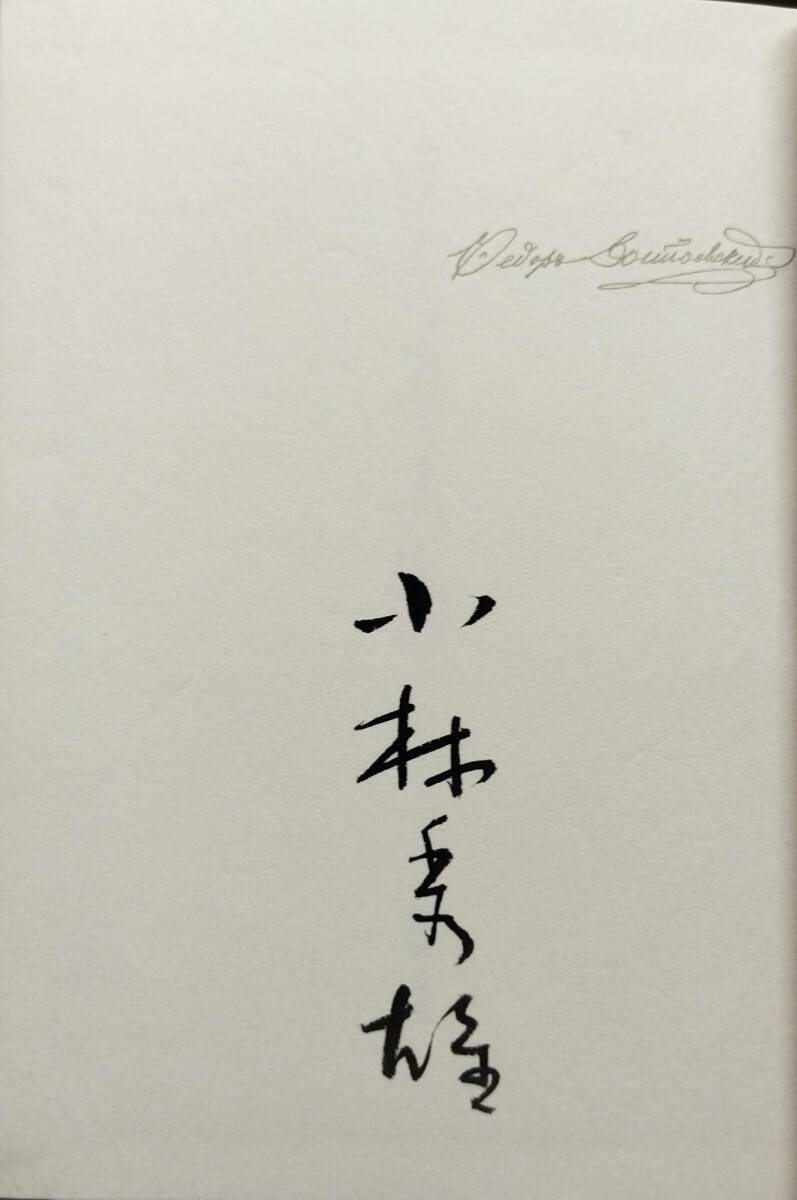 Ѳедоръ Достоевский
小林秀雄